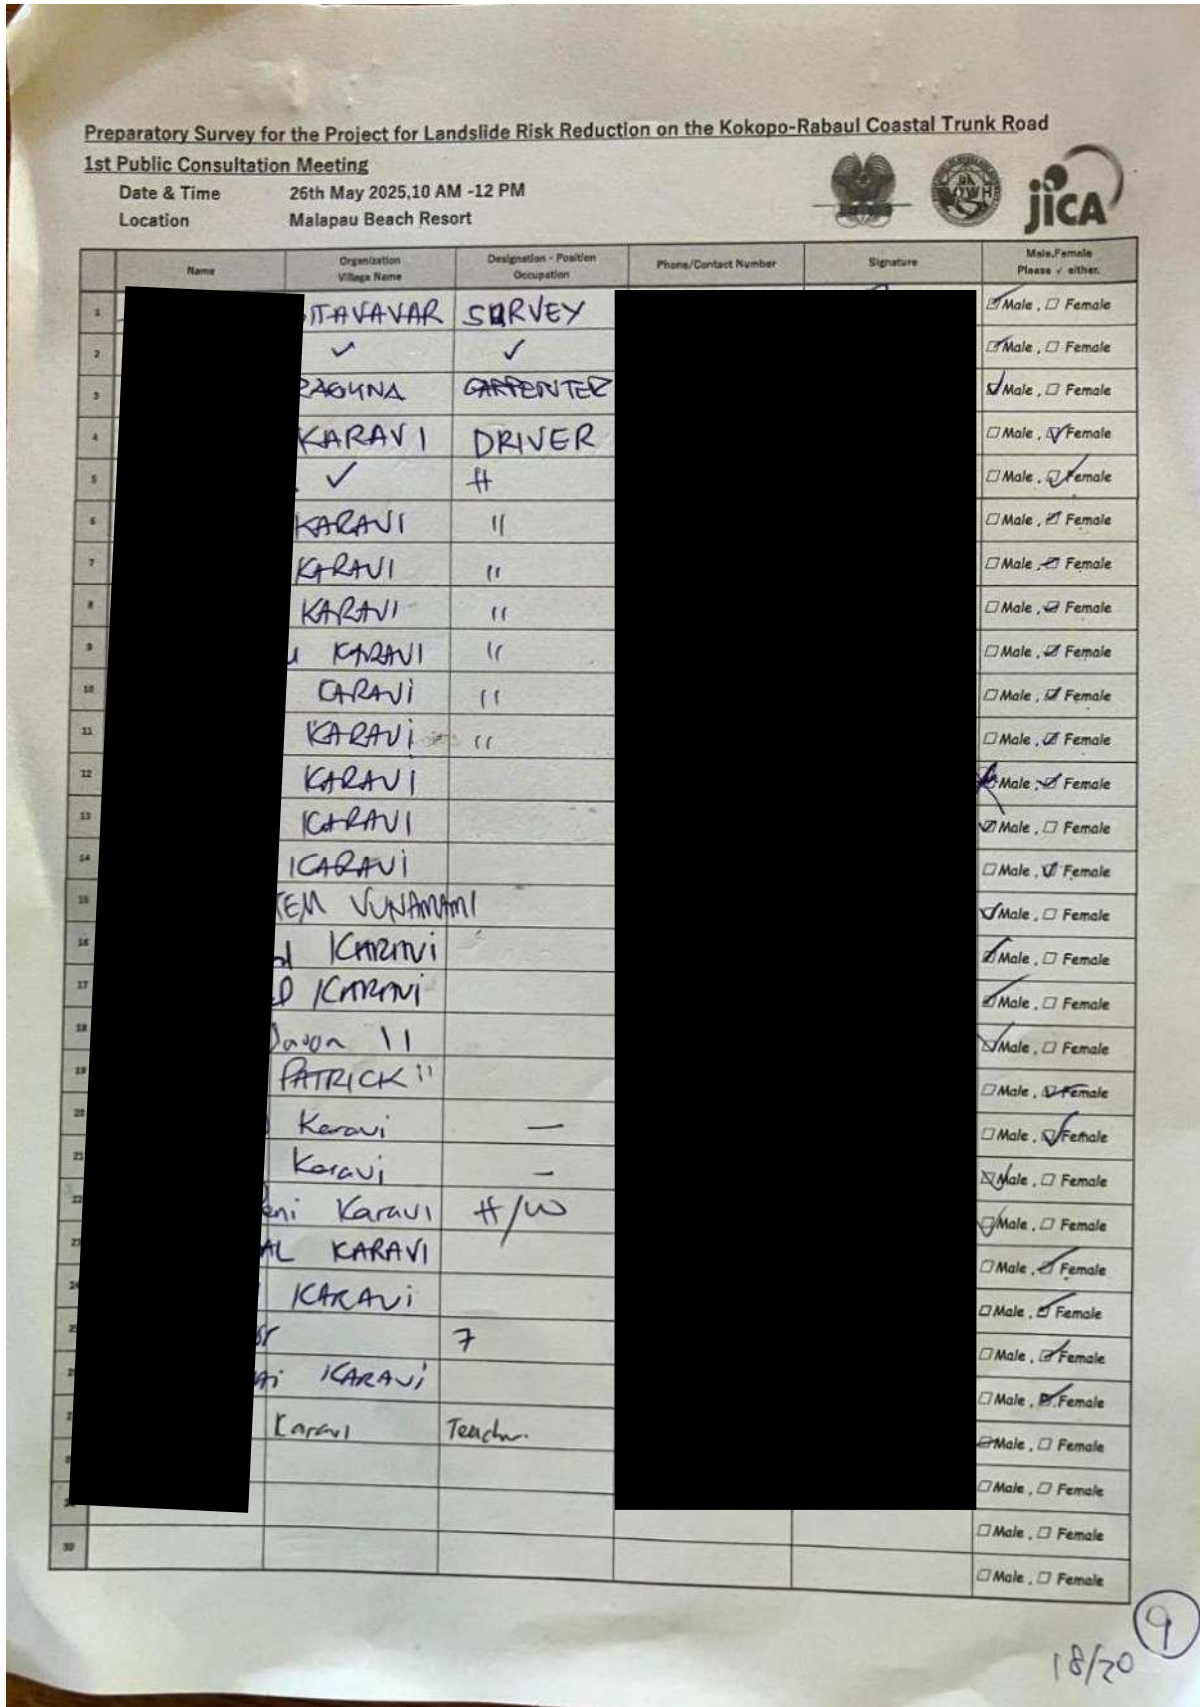 Preparatory Survey for the Project for Landslide Risk Reduction on the Kokopo-Rabaul Coastal Trunk Road
1st Public Consultation Meeting
Date & Time 26th May 2025,10 AM -12 PM
Location Malapau Beach Resort
jICA
Name Organization Village Name Designation - Position Occupation Phone/Contact Number Signature Male,Female Please ✓ either.
1 ITAVAVAR SURVEY Male , Female
2 ✓ ✓ Male , Female
3 RAGUNA CARPENTER Male , Female
4 KARAVI DRIVER Male , Female
5 ✓ Male , Female
6 KARAVI " Male , Female
7 KARAVI " Male , Female
8 KARAVI " Male , Female
9 KARAVI " Male , Female
10 CARAVI " Male , Female
11 KARAVI " Male , Female
12 KARAVI Male , Female
13 KARAVI Male , Female
14 KARAVI Male , Female
15 TEM VUNAMAMI Male , Female
16 KARAVI Male , Female
17 KARAVI Male , Female
18 " Male , Female
19 PATRICK " Male , Female
20 Karavi — Male , Female
21 Karavi — Male , Female
22 eni Karavi H/W Male , Female
23 AL KARAVI Male , Female
24 KARAVI Male , Female
7 Male , Female
KARAVI Male , Female
Karavi Teacher Male , Female
Male , Female
Male , Female
30 Male , Female
9
18/20